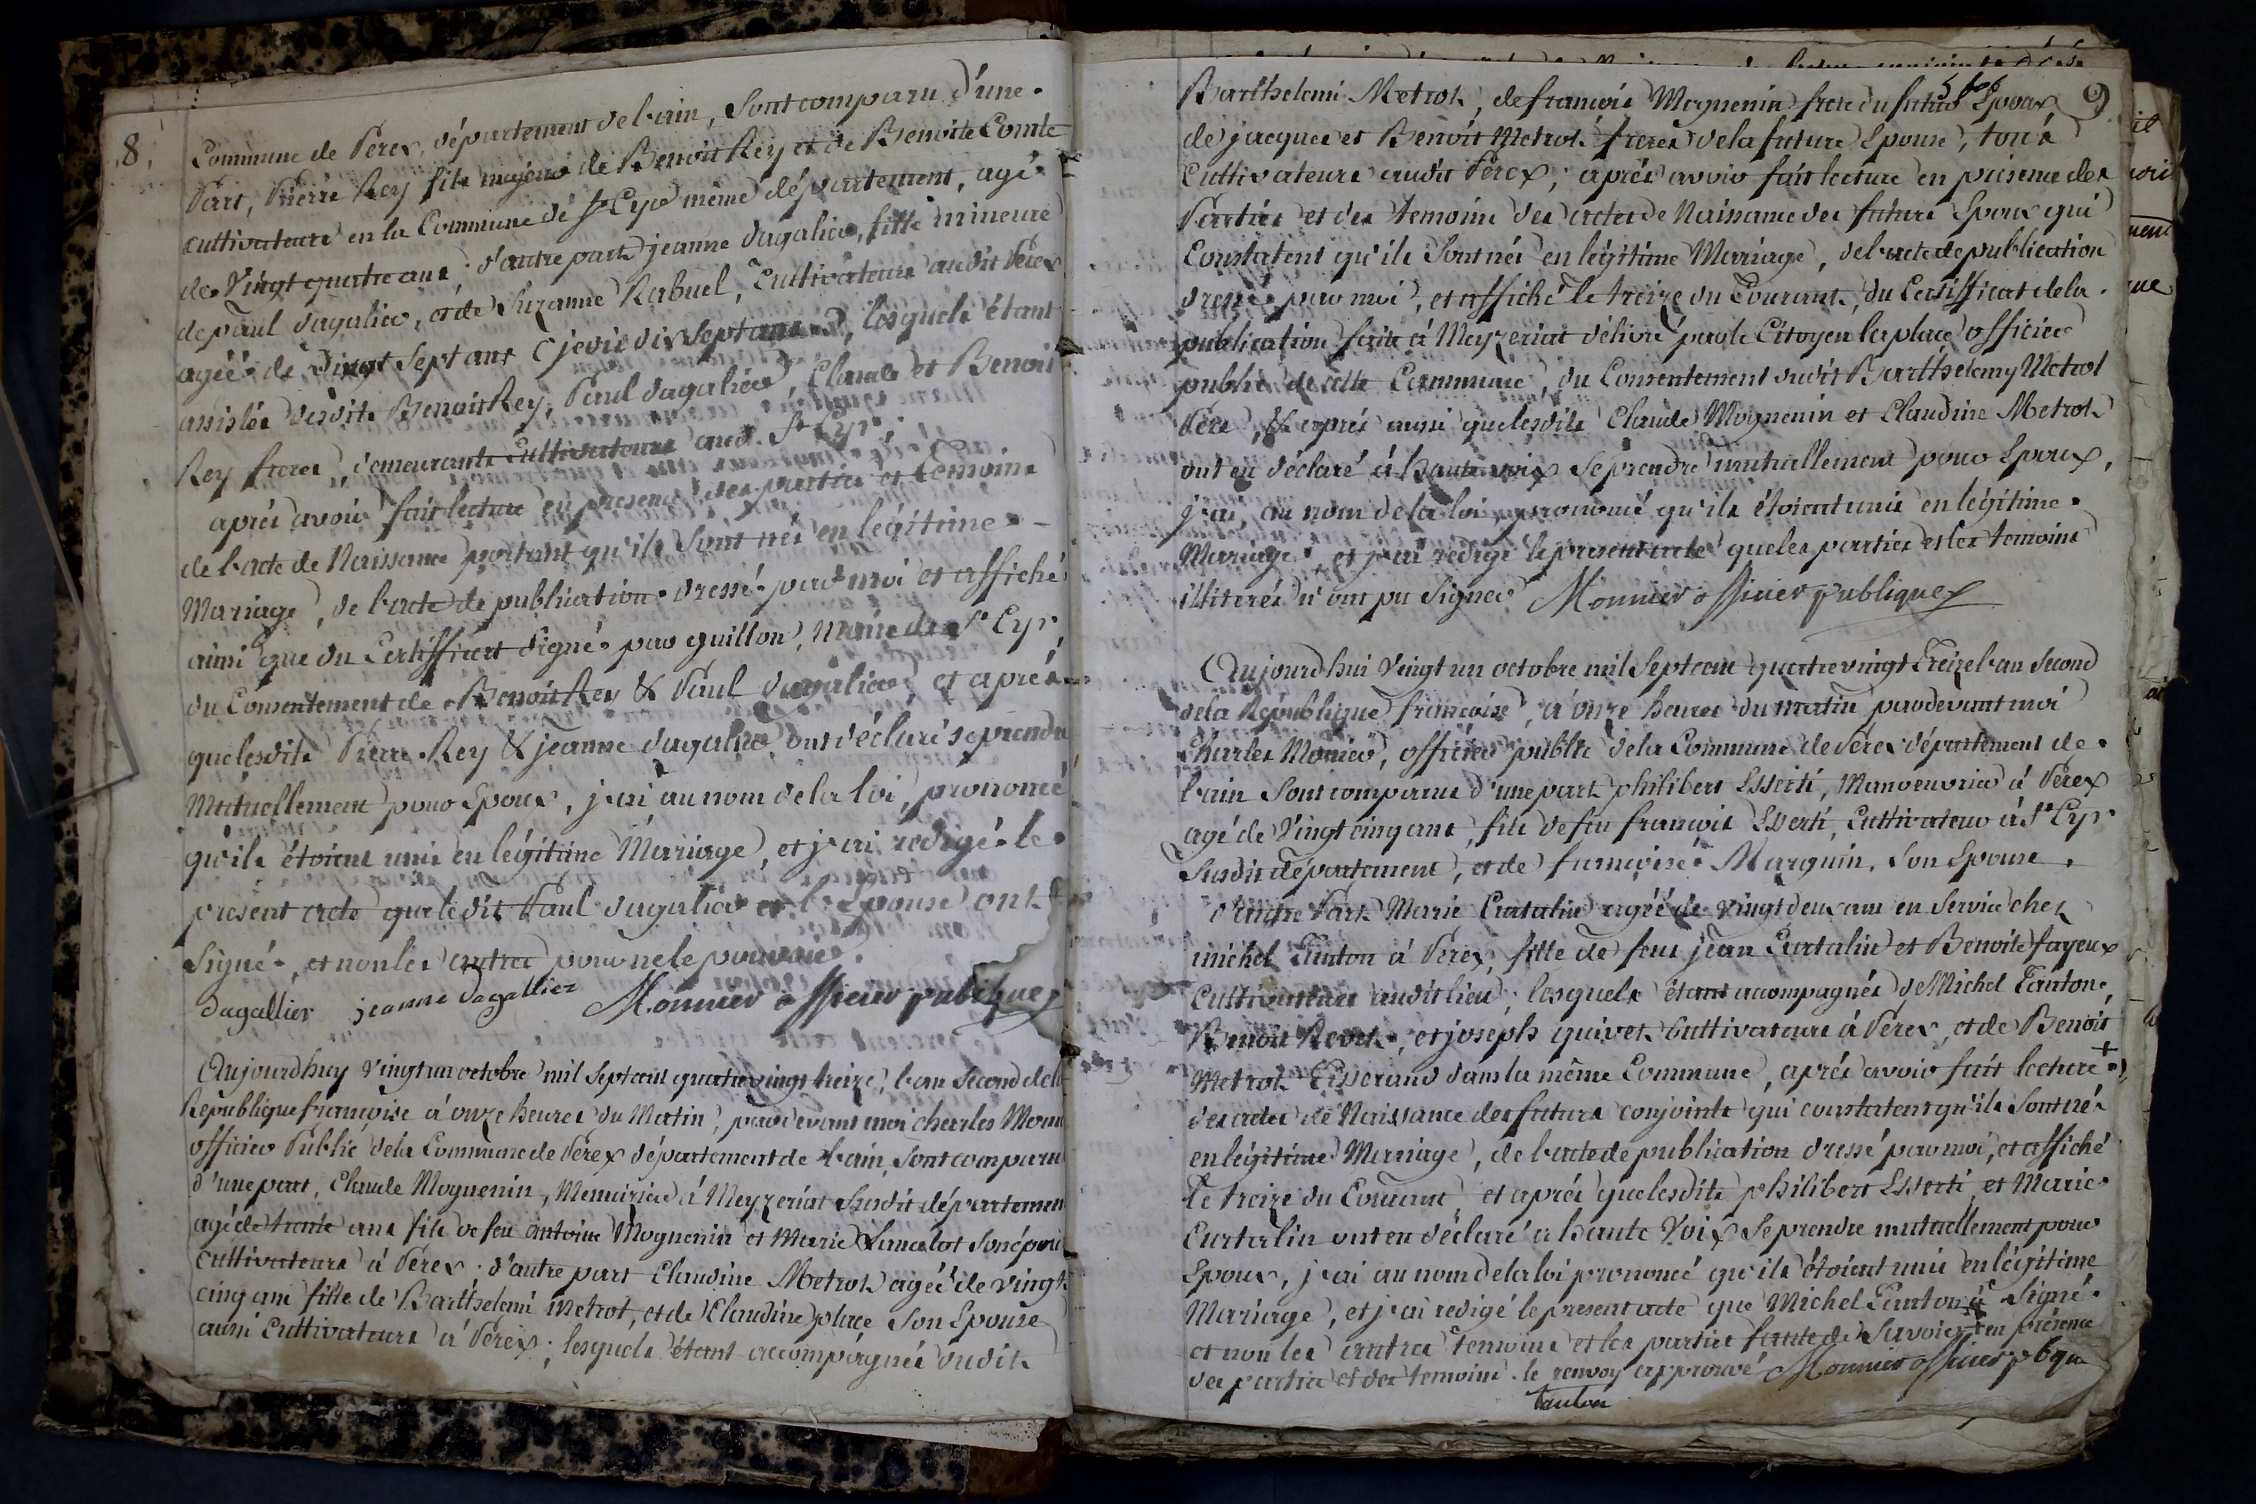 8
Commune de Pérex, département de l'ain, Sont comparu d'une
Part, Pierre Rey fils majeur de Benoit Rey et de Benoite Comte
cultivateurs en la Commune de St Cyr même département, agé
de Vingt quatre ans, d'autre part jeanne dagalier, fille mineure
de paul dagalier, et de Suzanne Rabuel, Cultivateurs audit Pérex
agéé de Vingt Sept ans (je dis dix Sept ans), lesquels étant
assistés desdits Benoit Rey, Paul dagalier, Claude et Benoit
Rey freres, demeurants Cultivateurs aud. St Cyr,
après avoir fait lecture en présence des parties et temoins
de l'acte de Naissance portant qu'ils Sont nés en légitime
Mariage, de l'acte de publication dressé par moi et affiché
ainsi que du Certifficat Signé par guillon, Maire de St Cyr,
du Consentement de Benoit Rey & Paul dagalier, et après
que lesdits Pierre Rey & jeanne dagalier ont déclaré se prendre
Mutuellement pour Epoux, j'ai au nom de la loi, prononcé
qu'ils étoient unis en légitime Mariage, et j'ai redigé le
present acte que ledit Paul dagalier et l'Epouse ont
Signé, et non les autres pour ne le pouvoir.
dagallier jeanne dagallier Monnier officier publique
Aujourd'huy Vingt un octobre mil Sept cent quatre vingt treize, l'an Second de la
République françoise à onze heures du Matin, pardevant moi charles Monn
officier Public de la Commune de Pérex département de l'ain, Sont comparu
d'une part, Claude Moguenin, à Meyzeriat Susdit départemen
agé de trente ans fils de feu antoine Moguenin et Marie Lancelot Son épou
Cultivateurs à Pérex. d'autre part Claudine Metrot agéé de vingt
cinq ans fille de Barthelemi Metrot, et de Claudine place Son Epouse
aussi Cultivateurs à Pérex; lesquels étant accompagnés dudit
9
Barthelemi Metrot, de francois Moguenin frere du futur Epoux
de jacques et Benoit Metrot freres de la future Epouse, tous
Cultivateurs audit Pérex; après avoir fait lecture en présence des
Parties et des temoins des actes de Naissance des futurs Epoux qui
Constatent qu'ils Sont nés en légitime Mariage, de l'acte de publication
dressé par moi, et affiché le treize du Courant, du Certifficat de la
publication faite à Meyzeriat délivré par le Citoyen laplace officier
public de cette Commune, du Consentement dudit Barthelemy Metrot
Père, & après aussi que lesdits Claude Moguenin et Claudine Metrot
ont eu déclaré à haute voix Se prendre mutuellement pour Epoux,
j'ai, au nom de la loi, prononcé qu'ils étoient unis en légitime
Mariage, et j'ai redigé le present acte que les parties et les temoins
illiterés n'ont pu Signer Monnier officier publique
Aujourdhui Vingt un octobre mil Sept cent quatre vingt Treize l'an Second
de la République françoise, à onze heures du matin pardevant moi
Charles Monier, officier public de la Commune de Pérex département de
l'ain Sont comparus d'une part philibert Esserti, Manoeuvrier à Pérex
agé de Vingt cinq ans, fils de feu francois Esserti, Cultivateur à St Cyr
Susdit département, et de francoise Marguin, Son Epouse,
d'autre Part Marie Curtalin agéé de vingt deux ans en Service chez
michel Tanton à Pérex, fille de feu jean Curtalin et Benoite fayeux
Cultivateurs audit lieu, lesquels étant acompagnés de Michel Tanton,
Benoit Revet, et joseph quivet Cultivateurs à Pérex, et de Benoit
Metrot Tisserand dans la même Commune, après avoir fait lecture +
des actes de Naissance des futurs conjoints qui constatent qu'ils Sont nés
en légitime Mariage, de l'acte de publication dressé par moi, et affiché
le treize du Courant, et après que lesdits philibert Esserti et Marie
Curtalin ont eu déclaré à haute Voix Se prendre mutuellement pour
Epoux, j'ai au nom de la loi prononcé qu'ils étoient unis en légitime
Mariage, et j'ai redigé le present acte que Michel Tanton a Signé
et non les autres temoins et les parties faute de Savoir + en présence
des parties et des temoins. le renvoy approuvé Monnier officier pbque
tanton